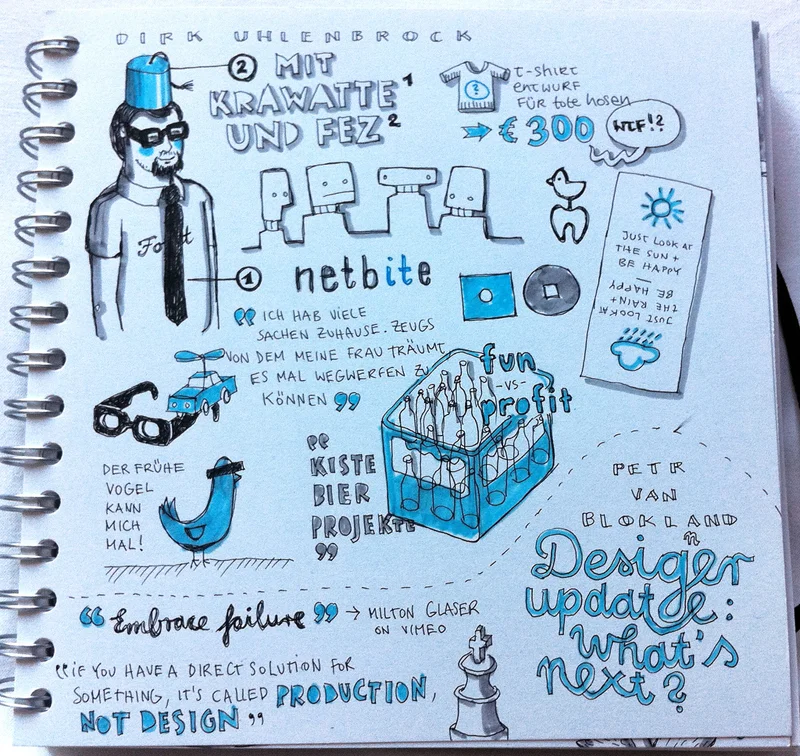 DIRK UHLENBROCK
2
MIT
KRAWATTE 1
UND FEZ 2
T-SHIRT
ENTWURF
FÜR tote hosen
?
€ 300
WTF!?
1
netbite
JUST LOOK AT
THE SUN +
BE HAPPY
JUST LOOK AT
THE RAIN +
BE HAPPY
„ ICH HAB VIELE
SACHEN ZUHAUSE. ZEUGS
VON DEM MEINE FRAU TRÄUMT
ES MAL WEGWERFEN ZU
KÖNNEN "
fun
-VS-
profit
DER FRÜHE
VOGEL
KANN
MICH
MAL!
"
KISTE
BIER
PROJEKTE
"
PETR
VAN
BLOKLAND
n
Desiger
update:
what's
next?
" Embrace failure " → MILTON GLASER
ON VIMEO
"IF YOU HAVE A DIRECT SOLUTION FOR
SOMETHING, IT'S CALLED PRODUCTION,
NOT DESIGN "